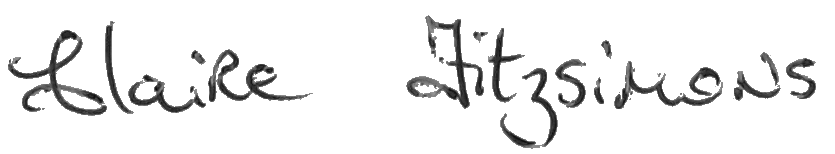 Claire Fitzsimons